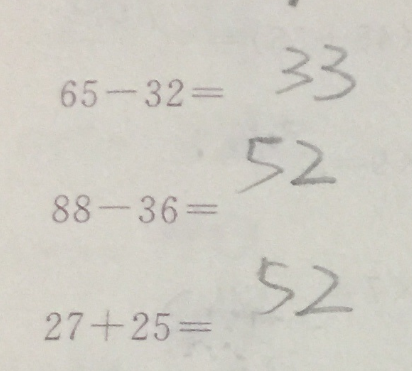 65－32＝ 33
88－36＝ 52
27＋25＝ 52